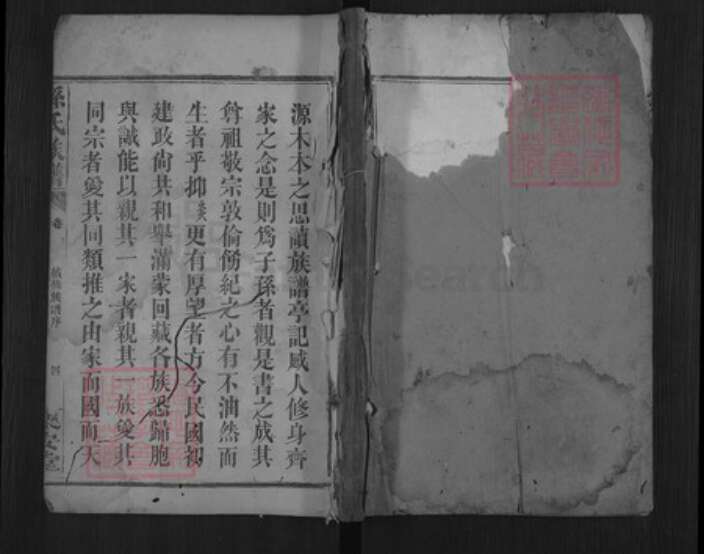 源木本之思讀族譜亭記感人修身齊
家之念是則為子孫者觀是書之成其
尊祖敬宗敦倫飭紀之心有不油然而
生者乎抑羙更有厚望者方今民國初
建政尚共和舉滿蒙回藏各族悉歸胞
與誠能以親其一家者親其一族愛其
同宗者愛其同類推之由家而國而天
孫氏族譜
卷
族譜序
四